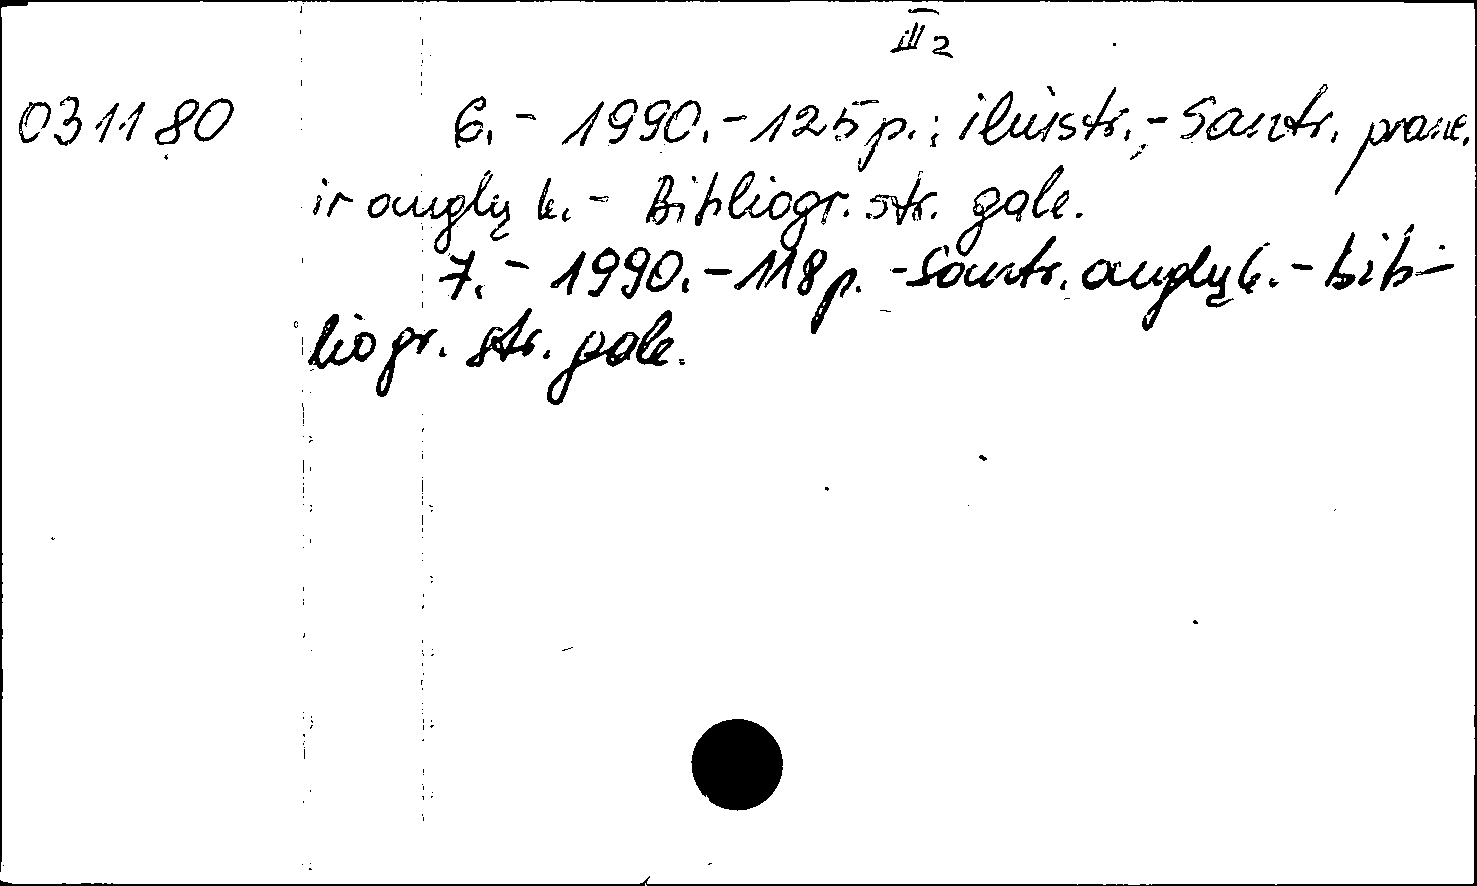 III2
031180 6. - 1990. - 125 p.: iliustr. - Santr. pranc.
ir anglų k. - Bibliogr. str. gale.
7. - 1990. - 118 p. - Santr. anglų k. - Bib-
liogr. str. gale.